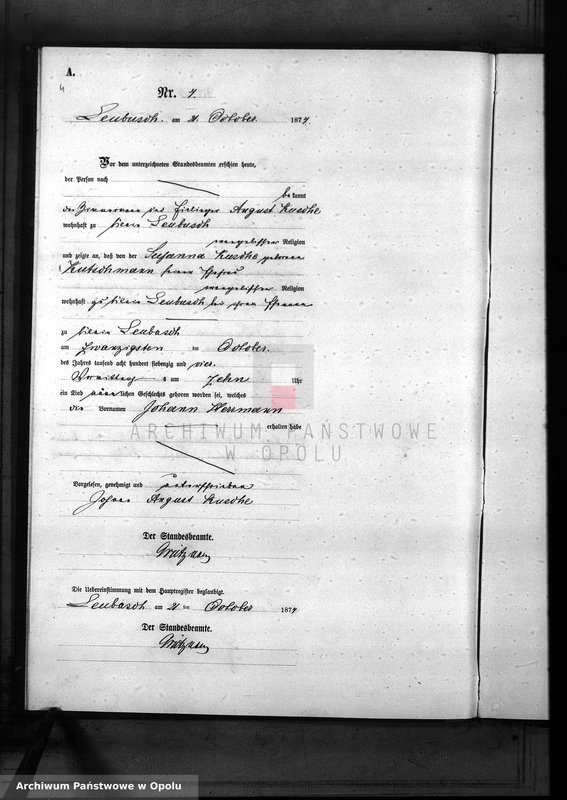 A.
Nr. 4.
Leubusch. am 21. October. 1874.
Vor dem unterzeichneten Standesbeamten erschien heute,
der Person nach
bekannt
der August Kusche
wohnhaft zu Klein Leubusch
evangelischer Religion
und zeigte an, daß von der Susanna Kusche geborenen
Kutschmann seiner Ehefrau
evangelischer Religion
wohnhaft zu Klein Leubusch bei ihrem Ehemann
zu Klein Leubusch
am zwanzigsten ten October.
des Jahres tausend acht hundert siebenzig und vier.
Vormittags um zehn Uhr
ein Kind männlichen Geschlechts geboren worden sei, welches
die Vornamen Johann Herrmann
erhalten habe
Vorgelesen, genehmigt und unterschrieben
August Kusche
Der Standesbeamte.
Die Uebereinstimmung mit dem Hauptregister beglaubigt.
Leubusch am 21 ten October 1874
Der Standesbeamte.
ARCHIWUM PAŃSTWOWE
W OPOLU
Archiwum Państwowe w Opolu